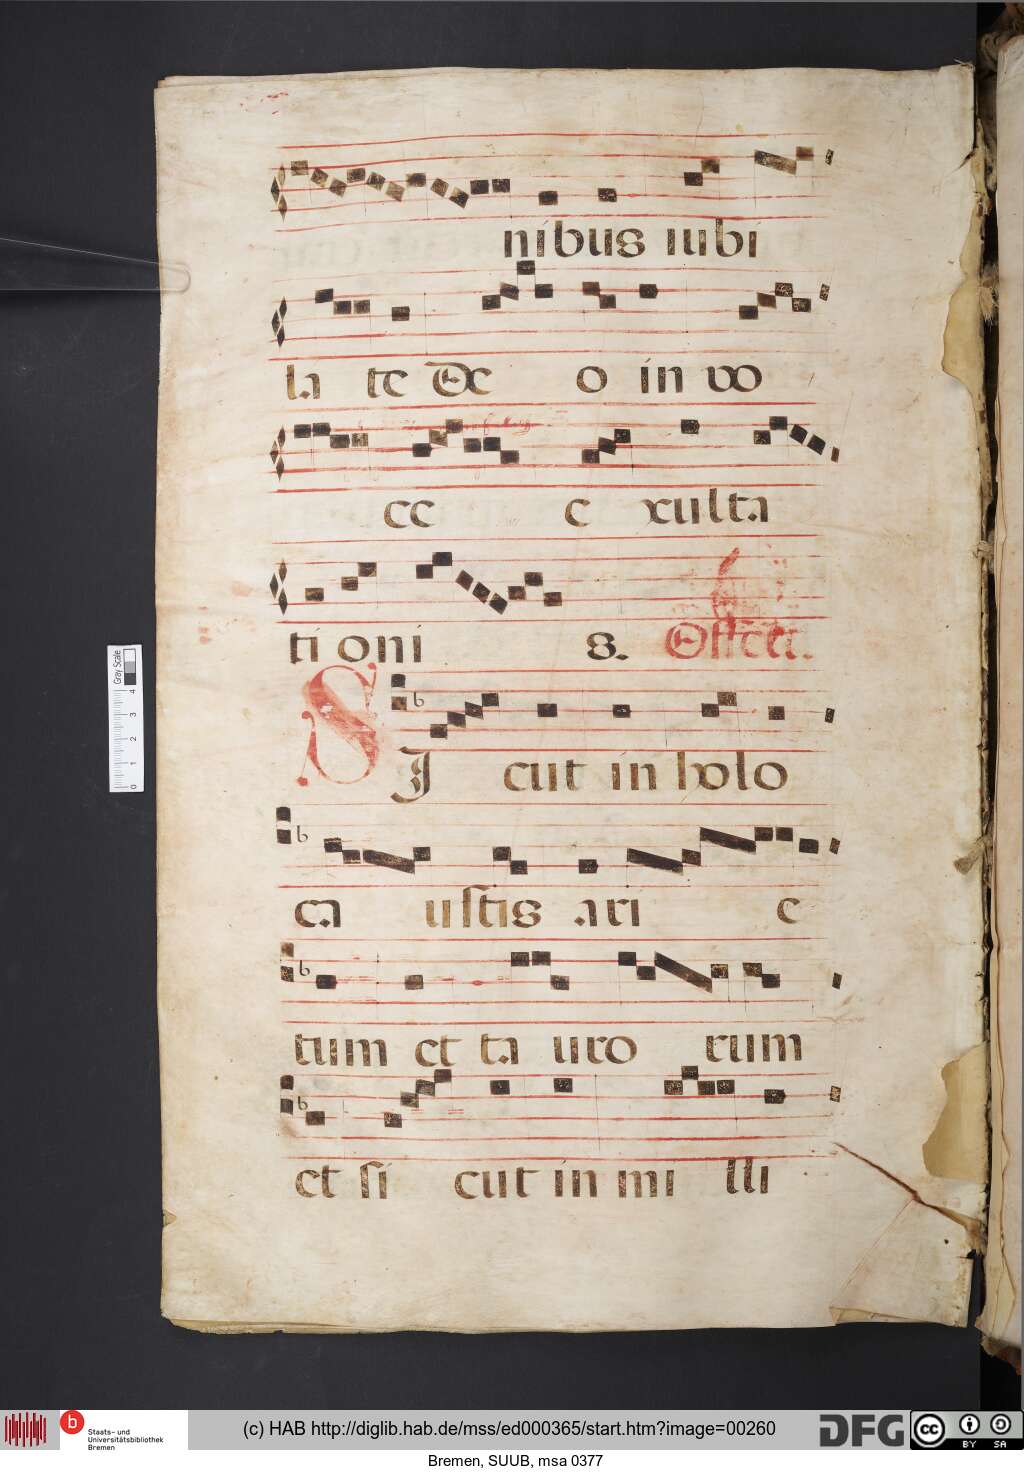 nibus iubi
la te De o in vo
ce e xulta
ti oni s. Offert.
SJ cut in holo
ca ustis ari e
tum et ta uro rum
et si cut in mi lli
Gray Scale
0 1 2 3 4
b Staats- und Universitätsbibliothek Bremen
(c) HAB http://diglib.hab.de/mss/ed000365/start.htm?image=00260
DFG
cc BY SA
Bremen, SUUB, msa 0377